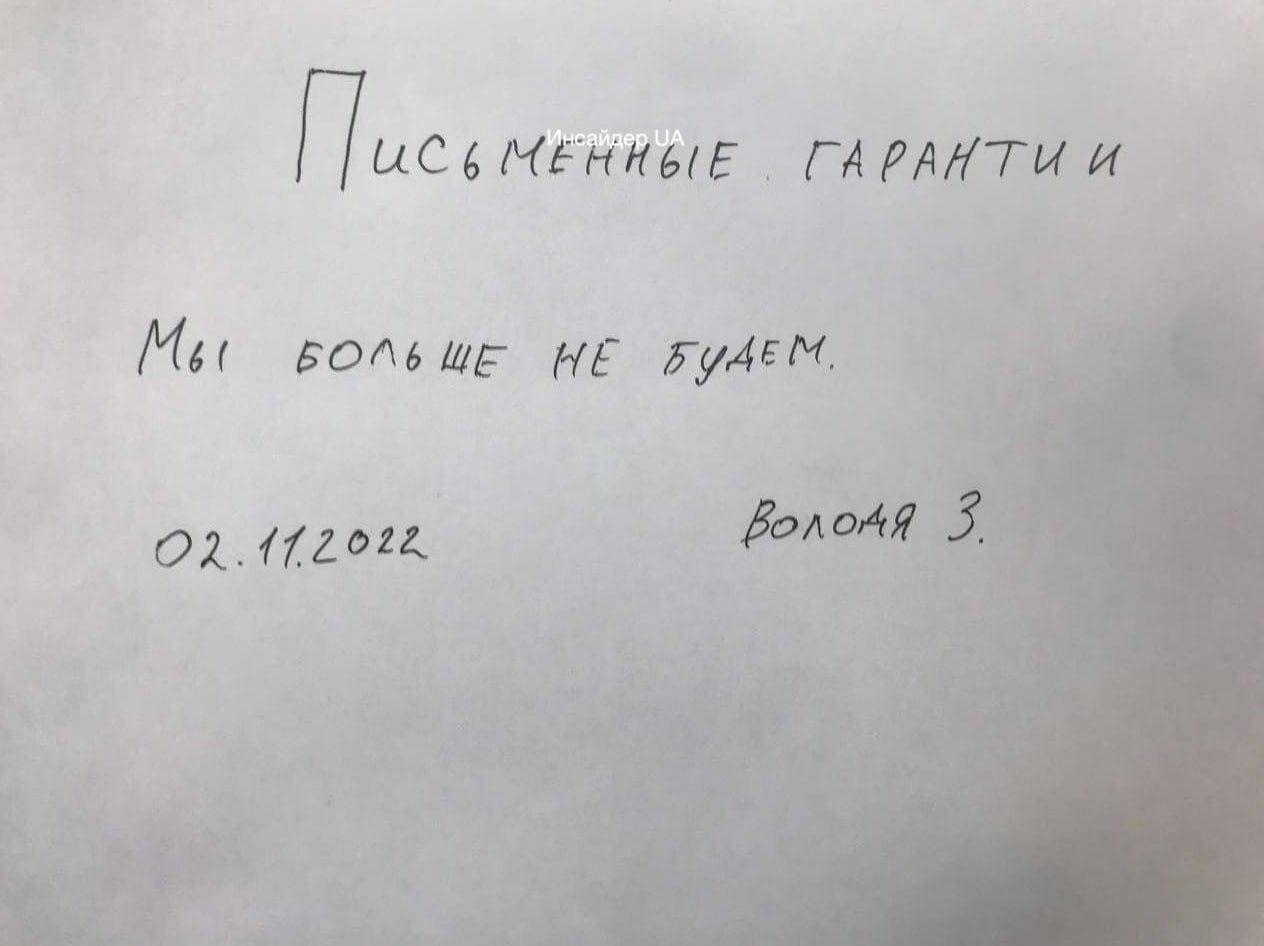 Инсайдер UA
Письменные гарантии
Мы больше не будем.
02.11.2022 Володя З.